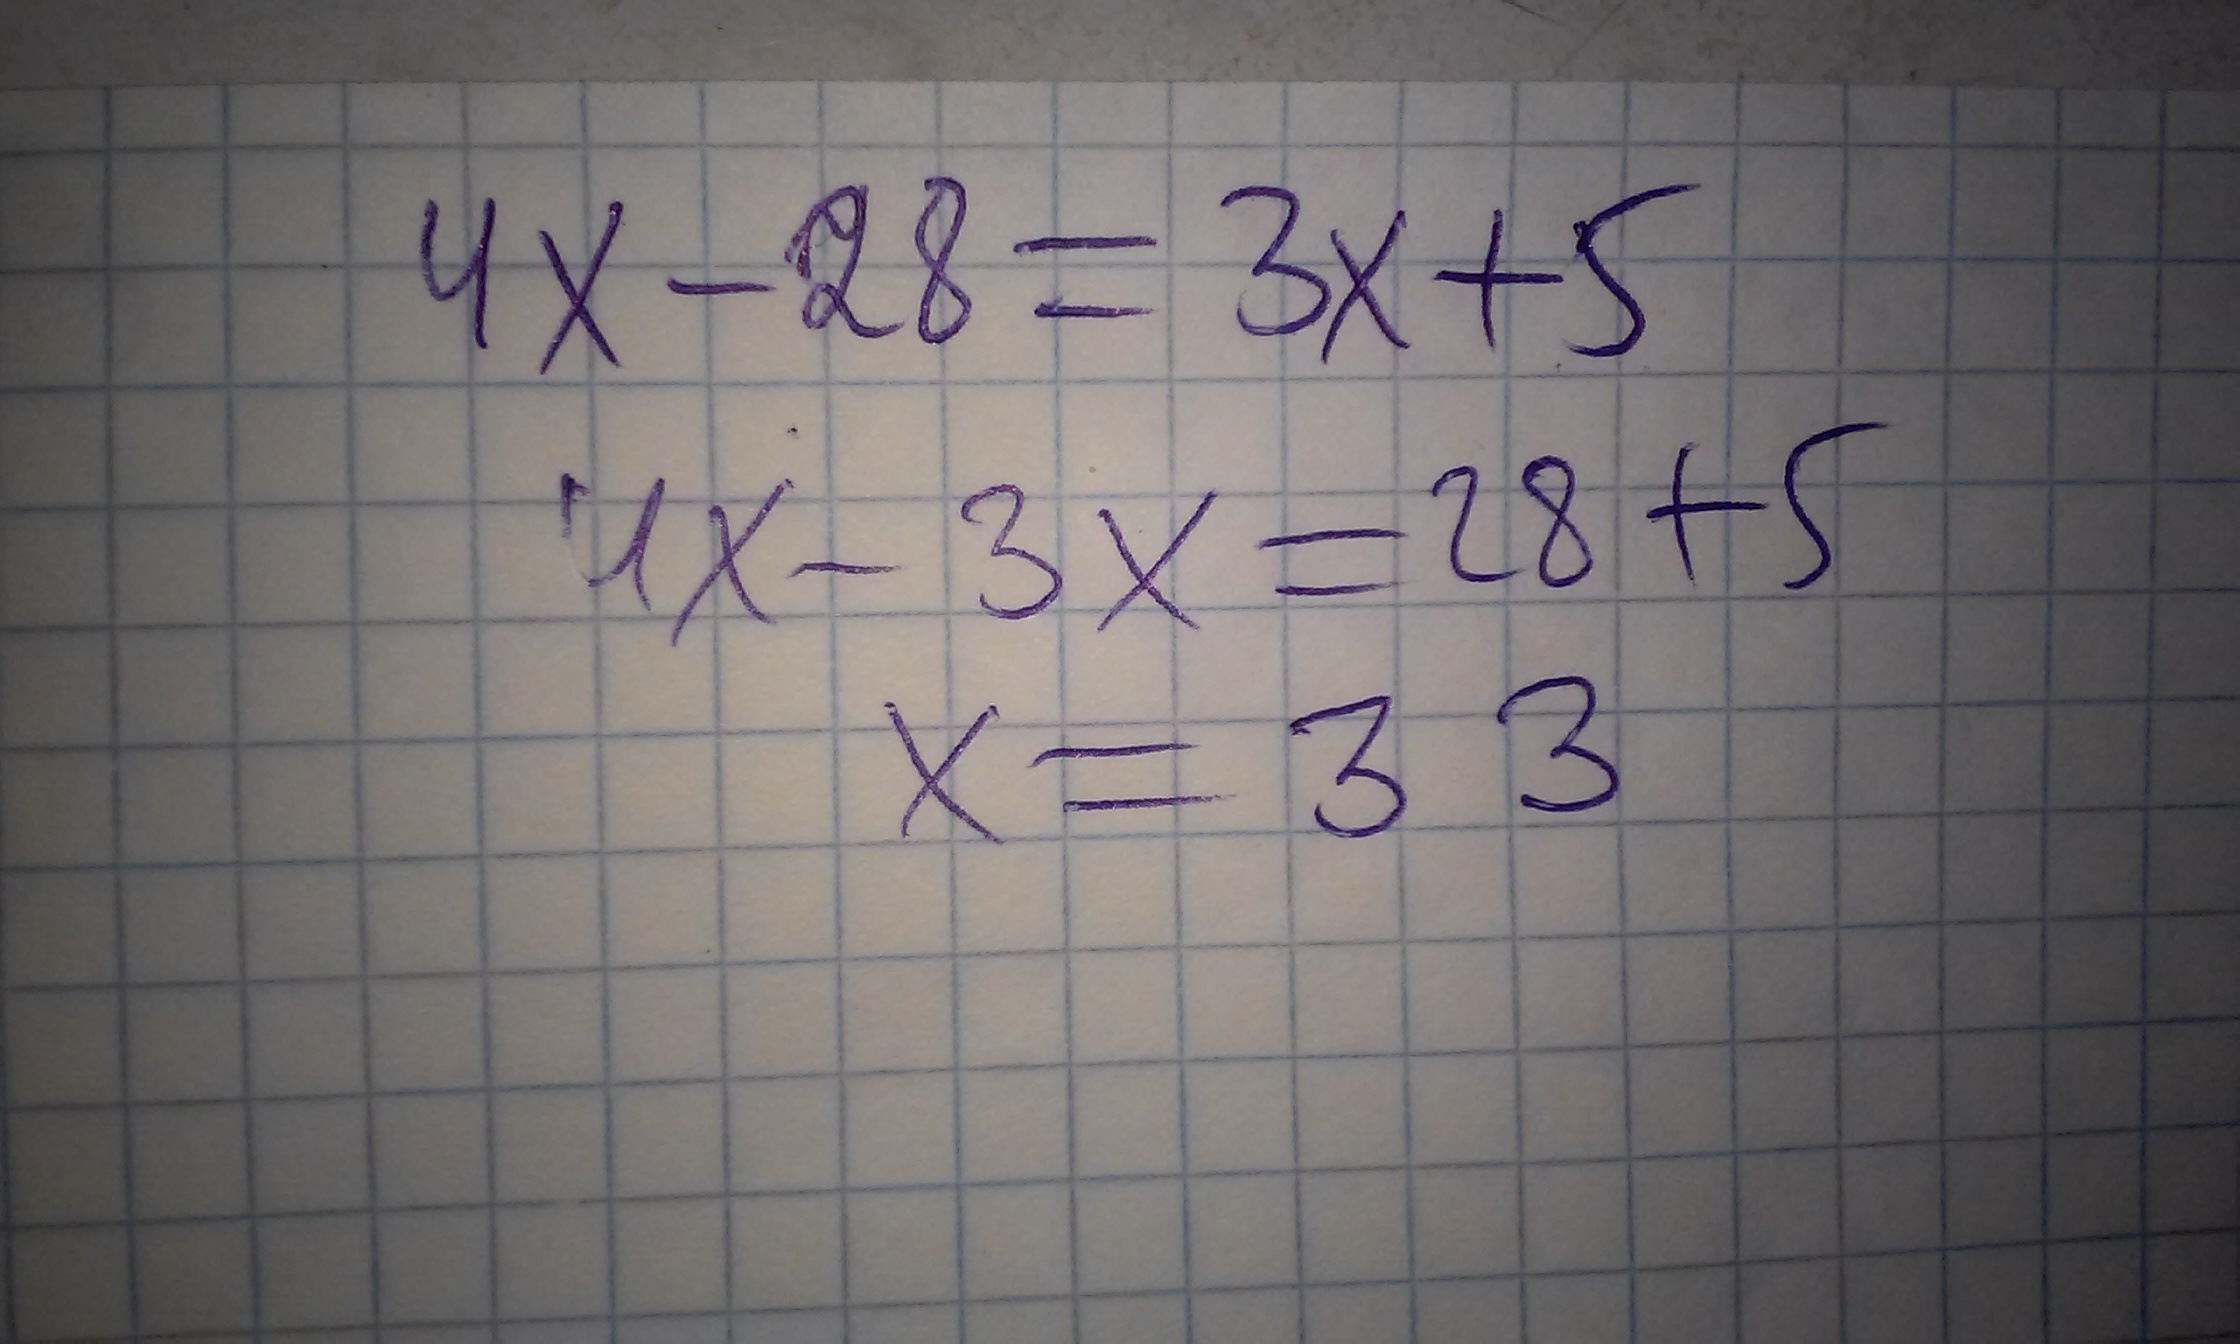 4x-28=3x+5
4x-3x=28+5
x=33